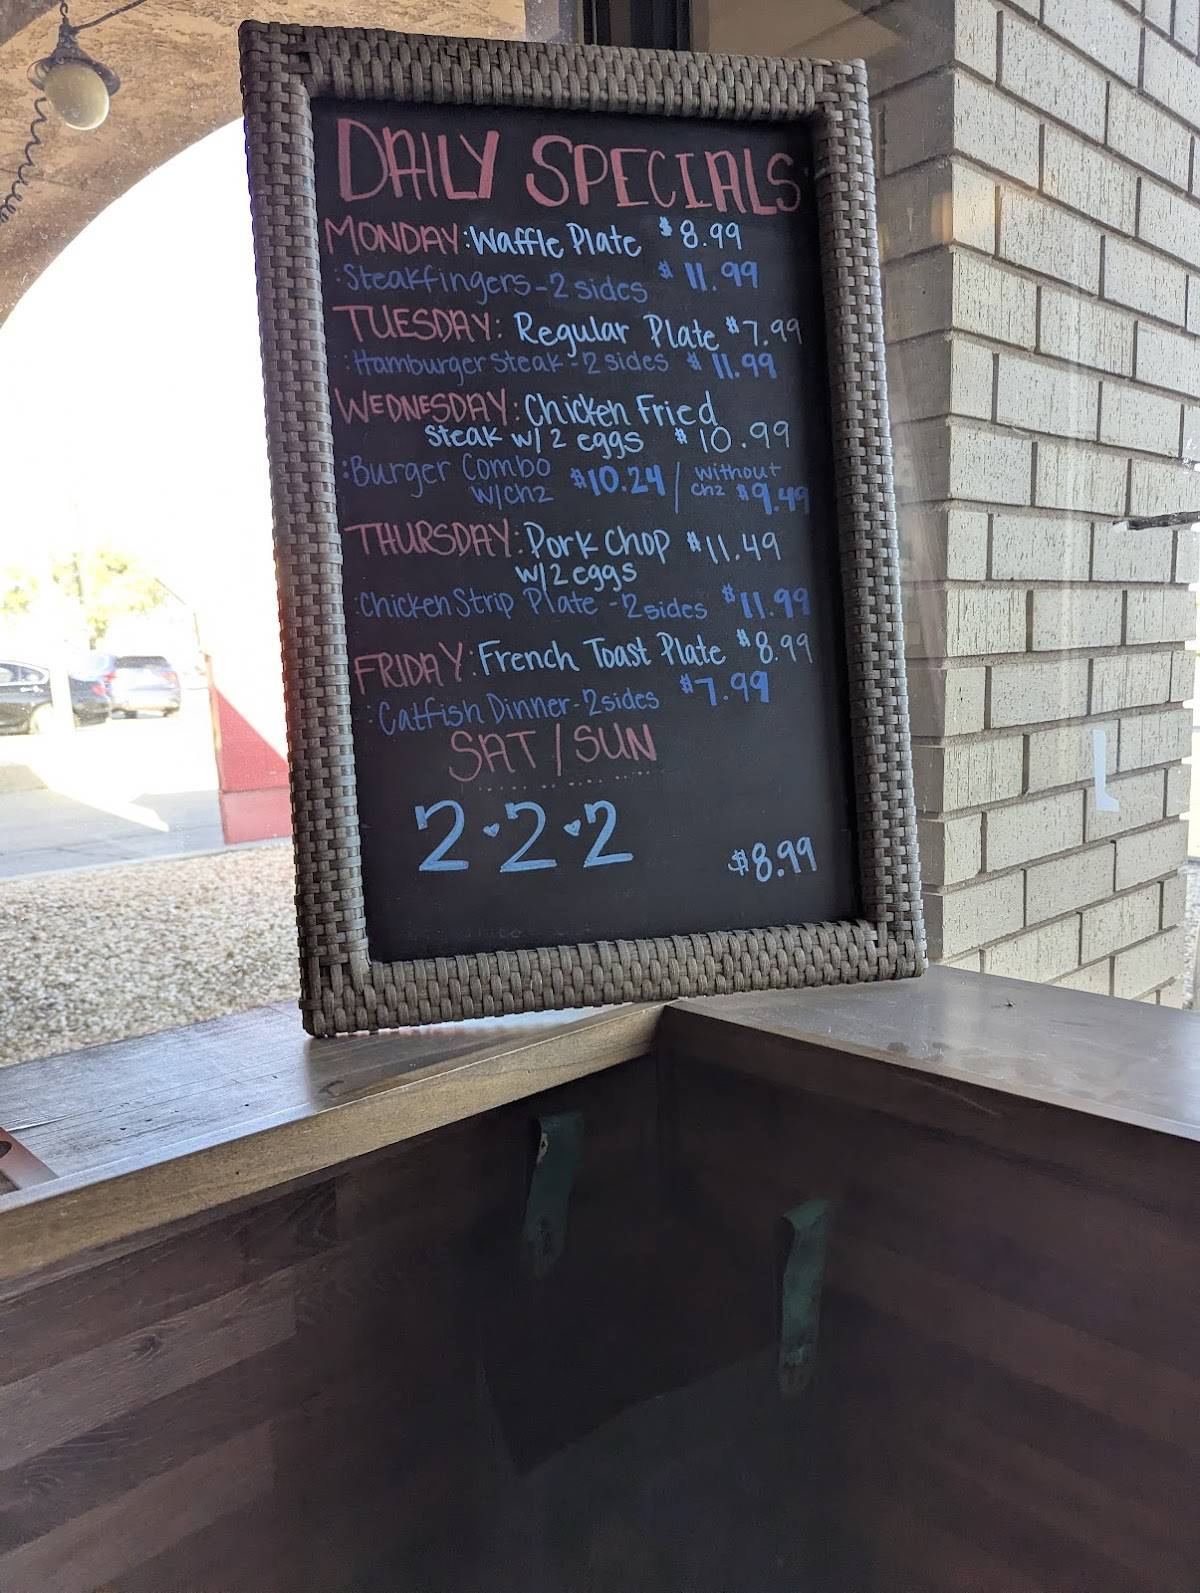 DAILY SPECIALS
MONDAY: Waffle Plate $8.99
: Steakfingers - 2 sides $11.99
TUESDAY: Regular Plate $7.99
: Hamburger Steak - 2 sides $11.99
WEDNESDAY: Chicken Fried
Steak w/ 2 eggs $10.99
: Burger Combo $10.24 / without
w/chz chz $9.49
THURSDAY: Pork Chop $11.49
w/ 2 eggs
: Chicken Strip Plate - 2 sides $11.99
FRIDAY: French Toast Plate $8.99
: Catfish Dinner - 2 sides $7.99
SAT / SUN
2 ♥ 2 ♥ 2 $8.99